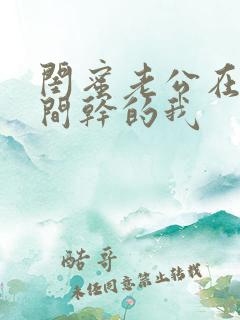 閨蜜老公在
間幹的我
酷哥
未经同意禁止转载